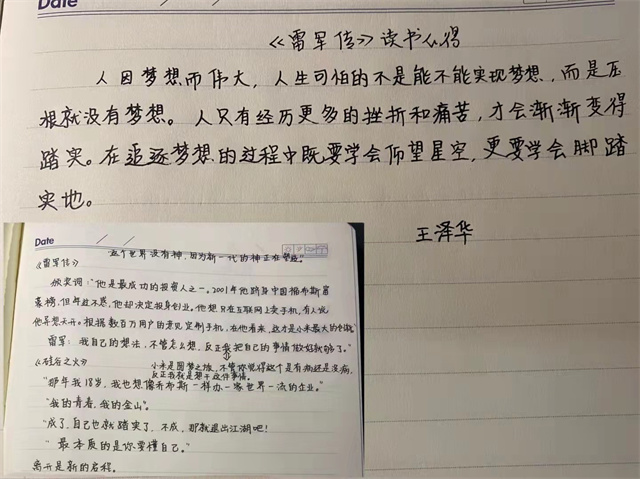 Date
《雷军传》读书心得
人因梦想而伟大，人生可怕的不是能不能实现梦想，而是压
根就没有梦想。人只有经历更多的挫折和痛苦，才会渐渐变得
踏实。在追逐梦想的过程中既要学会仰望星空，更要学会脚踏
实地。
王泽华
Date
这个世界没有神，因为新一代的神正在塑造。"
《雷军传》
颁奖词："他是最成功的投资人之一。2001年他跻身中国福布斯富
豪榜，但年近不惑，他却决定投身创业。他想只在互联网上卖手机，有人说
他异想天开。根据数百万用户的意见定制手机，在他看来，这才是小米最大的创新
雷军：我自己的想法，不管怎么想，反正我把自己的事情做好就够了。"
《硅谷之火》
小米是圆梦之旅，不管你觉得这个是有病还是没病，
反正我就是想干这件事情。
"那年我18岁，我也想像乔布斯一样办一家世界一流的企业。"
"我的青春，我的金山"。
"成了，自己也就踏实了，不成，那就退出江湖吧！
"最本质的是你要懂自己。"
离开是新的启程。